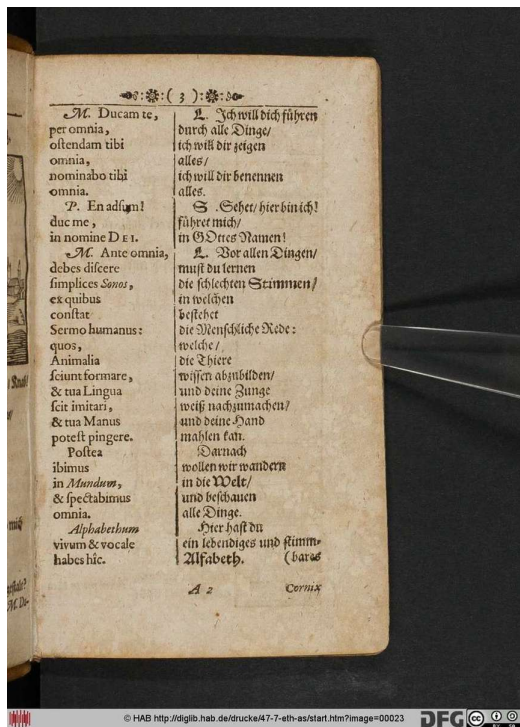 :( 3 ):
M. Ducam te,
per omnia,
oſtendam tibi
omnia,
nominabo tibi
omnia.
P. En adſum!
duc me,
in nomine DEI.
M. Ante omnia,
debes diſcere
ſimplices Sonos,
ex quibus
conſtat
Sermo humanus:
quos,
Animalia
ſciunt formare,
& tua Lingua
ſcit imitari,
& tua Manus
poteſt pingere.
Poſtea
ibimus
in Mundum,
& ſpectabimus
omnia.
Alphabethum
vivum & vocale
habes hîc.
L. Ich will dich führen
durch alle Dinge/
ich will dir zeigen
alles/
ich will dir benennen
alles.
S. Sehet/ hier bin ich!
führet mich/
in GOttes Namen!
L. Vor allen Dingen/
muſt du lernen
die ſchlechten Stimmen/
in welchen
beſtehet
die Menſchliche Rede:
welche/
die Thiere
wiſſen abzubilden/
und deine Zunge
weiß nachzumachen/
und deine Hand
mahlen kan.
Darnach
wollen wir wandern
in die Welt/
und beſchauen
alle Dinge.
Hier haſt du
ein lebendiges und ſtimm-
Alfabeth. (bares
A 2
Cornix
M. Du-
© HAB http://diglib.hab.de/drucke/47-7-eth-as/start.htm?image=00023
DFG